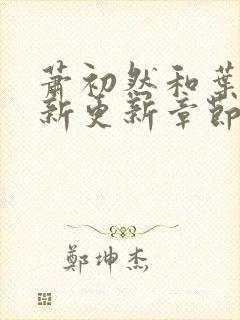 萧初然和葉
新更新章節
鄭坤杰